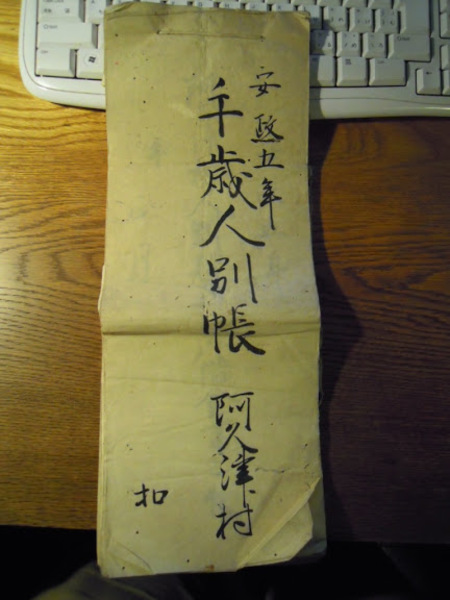 安政五年
千歳人別帳 阿久津村
扣